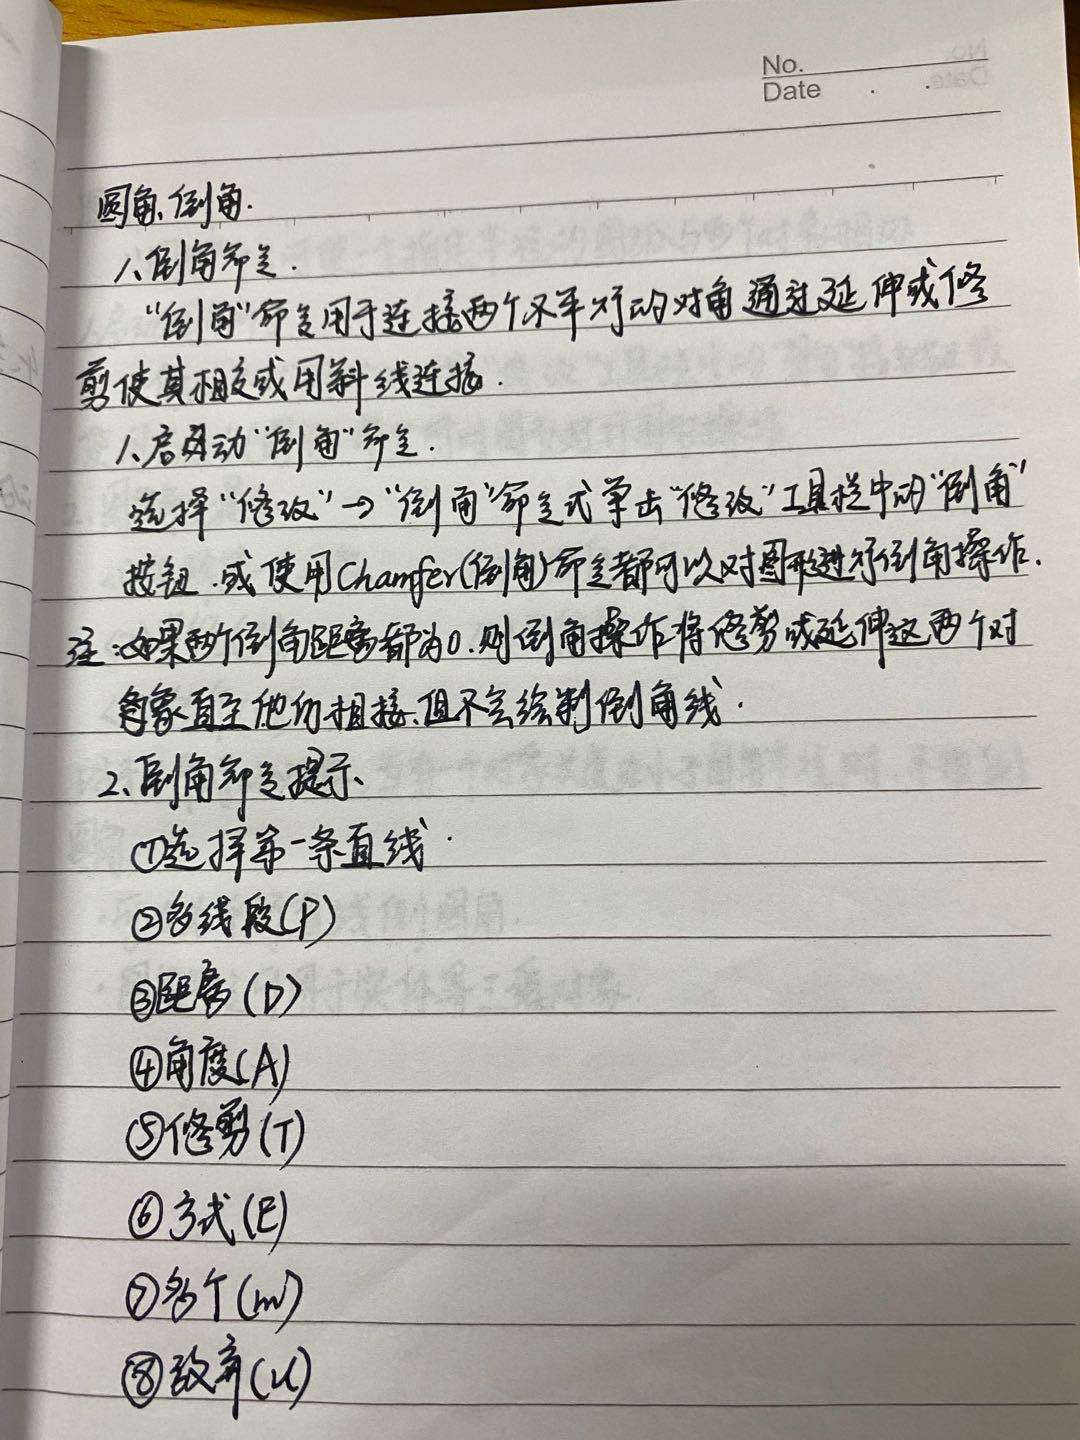 No.
Date
圆角、倒角.
1、倒角命令.
“倒角”命令用于连接两个不平行的对角通过延伸或修
剪使其相交或用斜线连接.
1、启动“倒角”命令.
选择“修改”→“倒角”命令或单击“修改”工具栏中的“倒角”
按钮.或使用Chamfer(倒角)命令都可以对图形进行倒角操作.
注:如果两个倒角距离都为0.则倒角操作将修剪或延伸这两个对
象直至他们相接、但不会绘制倒角线.
2、倒角命令提示、
①选择第一条直线.
②多线段(P)
③距离(D)
④角度(A)
⑤修剪(T)
⑥方式(E)
⑦多个(m)
⑧放弃(u)